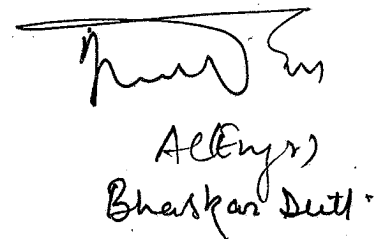 AC(Engrs)
Bhaskar Dutt.